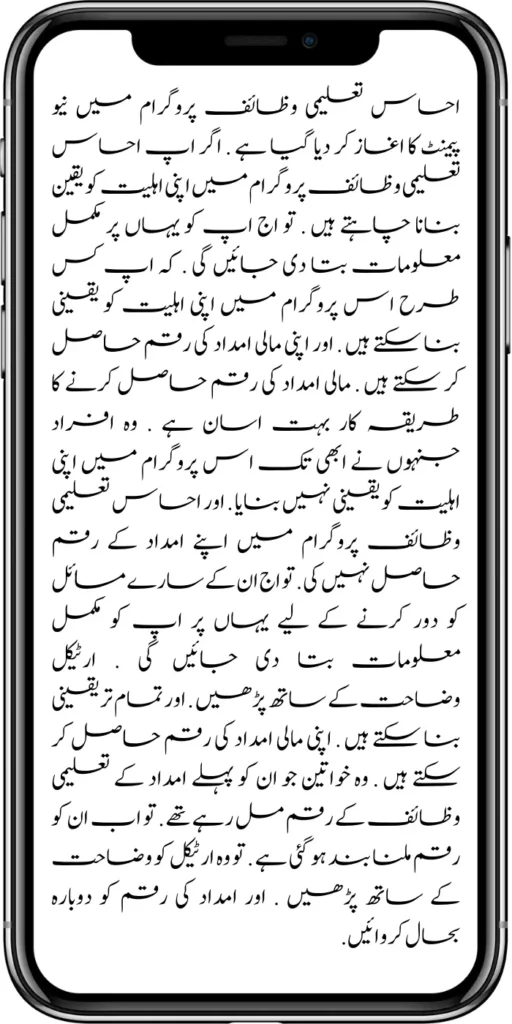 احساس تعلیمی وظائف پروگرام میں نیو
پیمنٹ کا اغاز کر دیا گیا ہے . اگر اپ احساس
تعلیمی وظائف پروگرام میں اپنی اہلیت کو یقین
بنانا چاہتے ہیں . تو اج اپ کو یہاں پر مکمل
معلومات بتا دی جائیں گی . کہ اپ کس
طرح اس پروگرام میں اپنی اہلیت کو یقینی
بنا سکتے ہیں . اور اپنی مالی امداد کی رقم حاصل
کر سکتے ہیں . مالی امداد کی رقم حاصل کرنے کا
طریقہ کار بہت اسان ہے . وہ افراد
جنہوں نے ابھی تک اس پروگرام میں اپنی
اہلیت کو یقینی نہیں بنایا . اور احساس تعلیمی
وظائف پروگرام میں اپنے امداد کے رقم
حاصل نہیں کی . تو اج ان کے سارے مسائل
کو دور کرنے کے لیے یہاں پر اپ کو مکمل
معلومات بتا دی جائیں گی . ارٹیکل
وضاحت کے ساتھ پڑھیں . اور تمام تر یقینی
بنا سکتے ہیں . اپنی مالی امداد کی رقم حاصل کر
سکتے ہیں . وہ خواتین جو ان کو پہلے امداد کے تعلیمی
وظائف کے رقم مل رہے تھے . تو اب ان کو
رقم ملنا بند ہو گئی ہے . تو وہ ارٹیکل کو وضاحت
کے ساتھ پڑھیں . اور امداد کی رقم کو دوبارہ
بحال کروائیں.